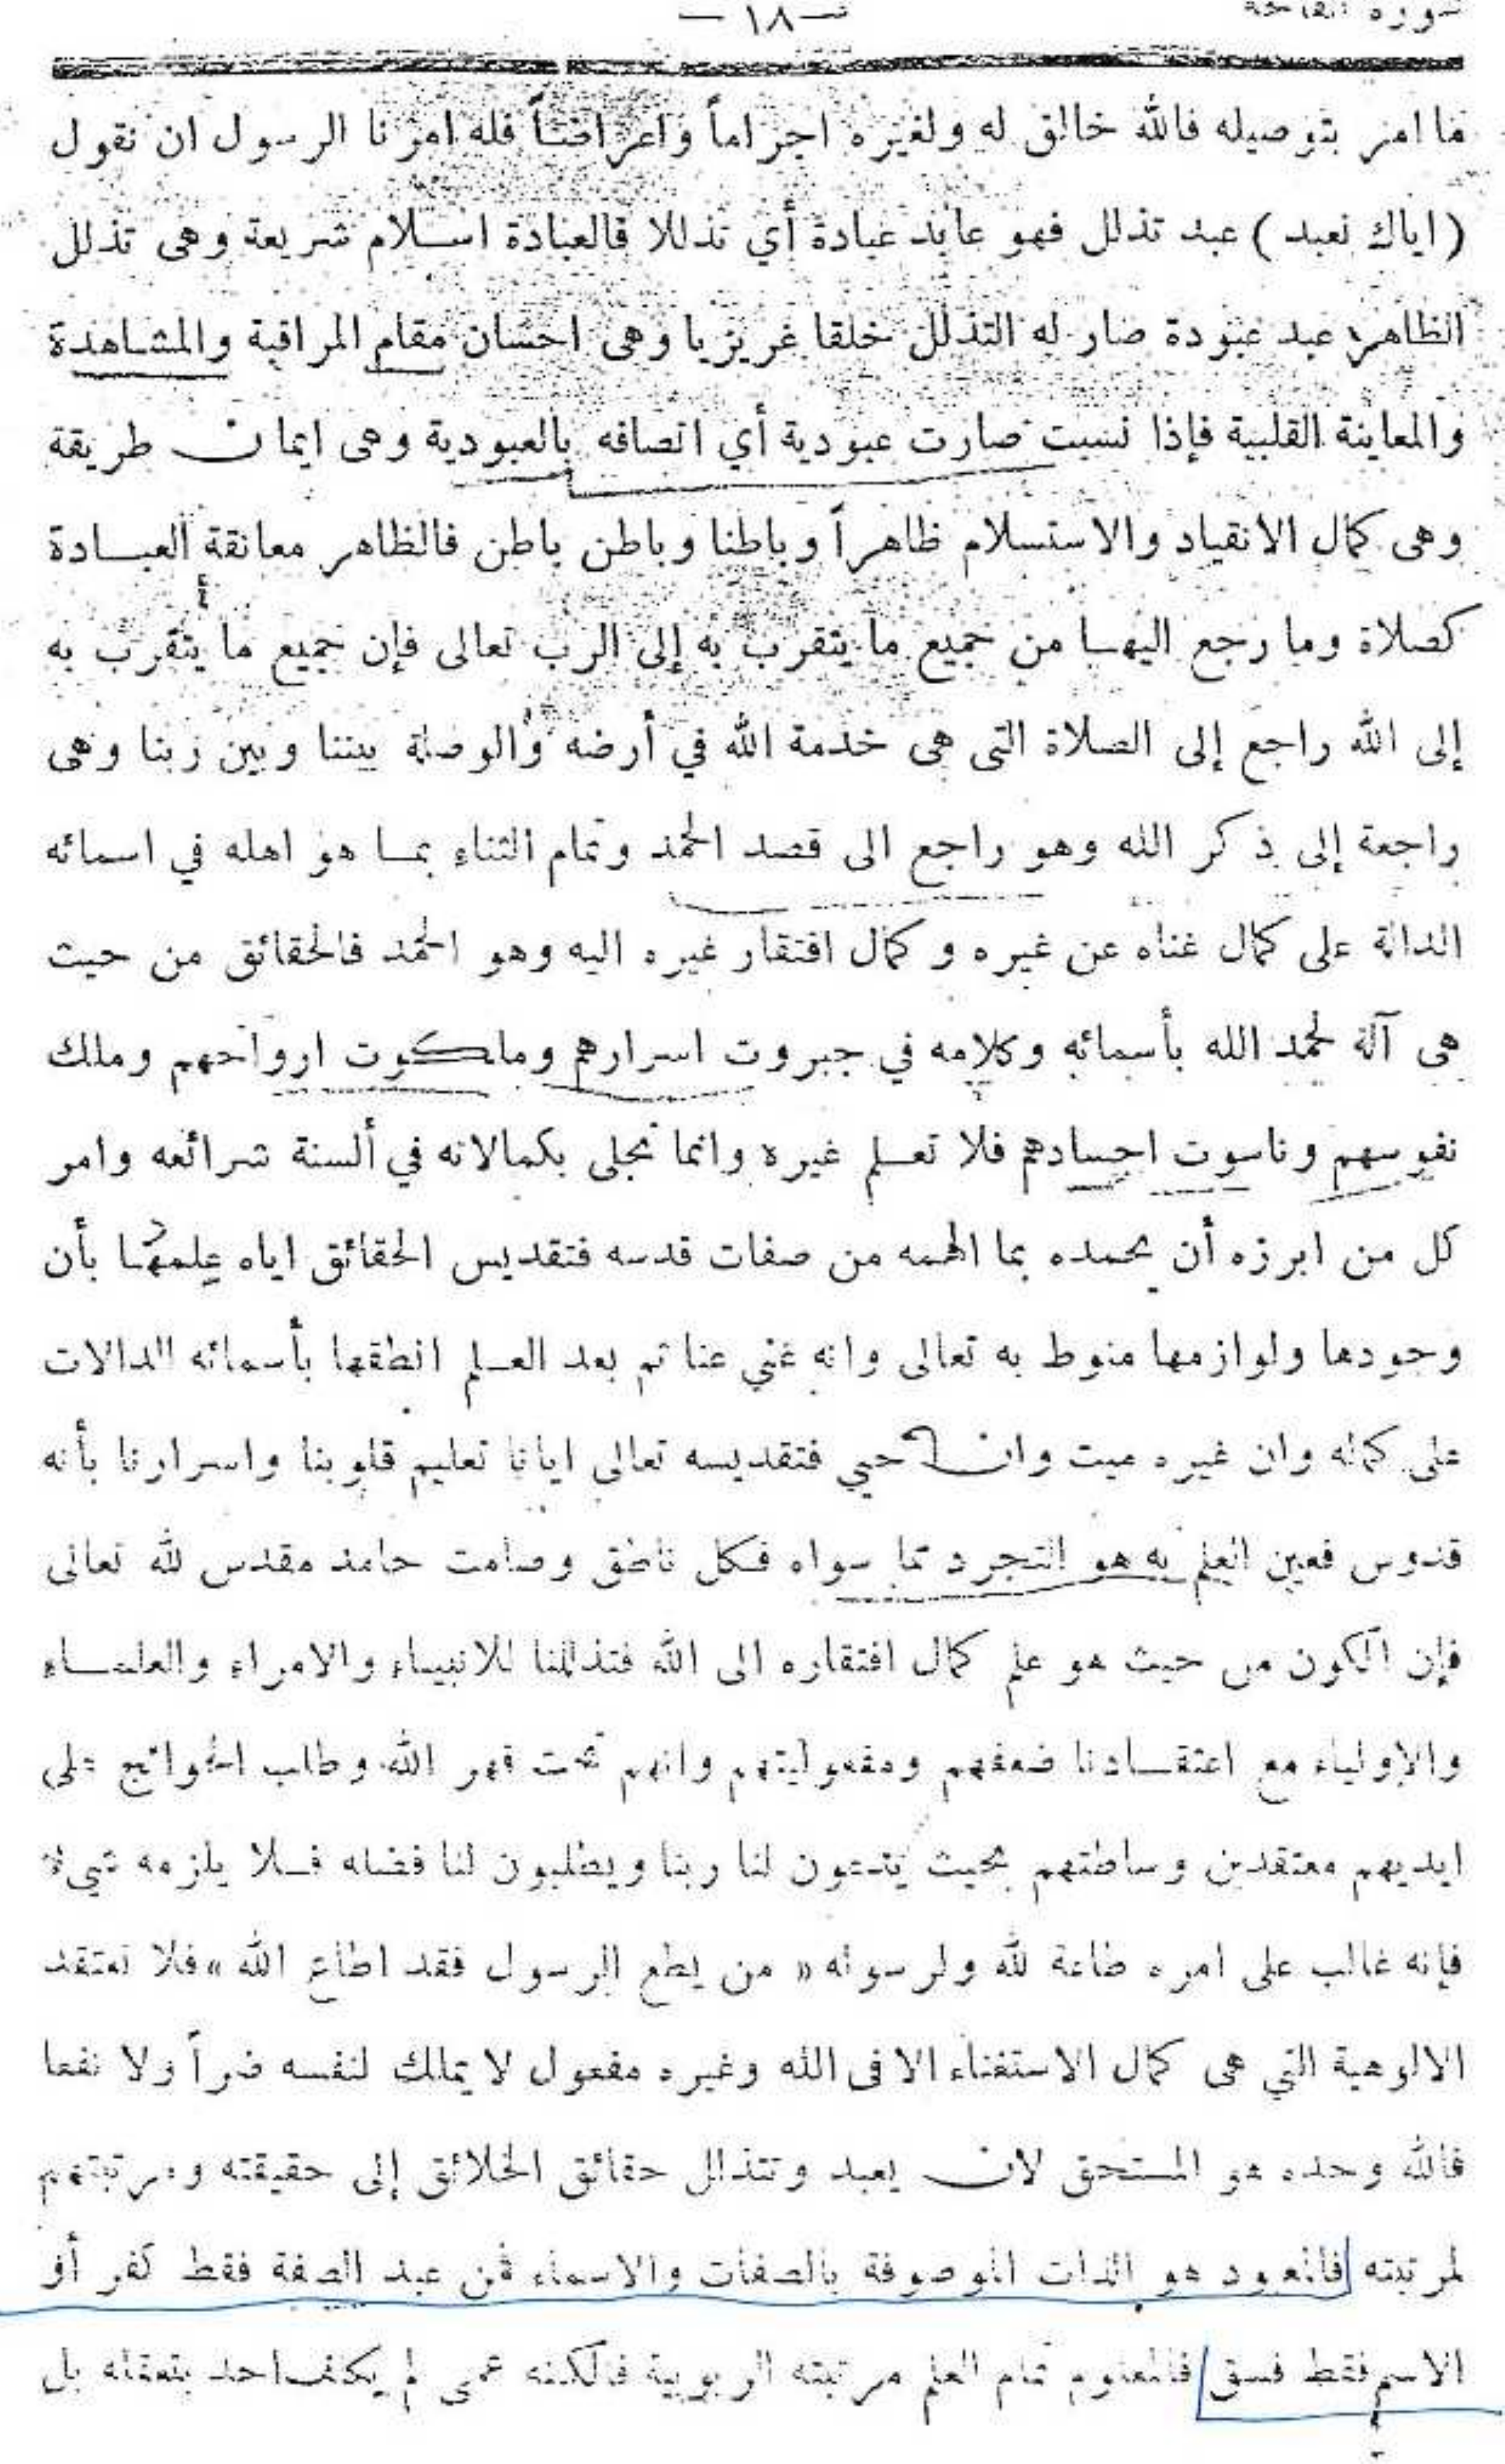 سورة الفاتحة
— ١٨ —
ما امر بتوصيله فالله خالق له ولغيره اجراماً واعراضاً فله امرنا الرسول ان نقول
( اياك نعبد ) عبد تذلل فهو عابد عبادة أي تذللا فالعبادة اسلام شريعة وهى تذلل
الظاهر عبد عبودة صار له التذلل خلقا غريزيا وهى احسان مقام المراقبة والمشاهدة
والمعاينة القلبية فإذا نسبت صارت عبودية أي اتصافه بالعبودية وهى ايمان طريقة
وهى كمال الانقياد والاستسلام ظاهراً وباطنا وباطن باطن فالظاهر معانقة العبادة
كصلاة وما رجع اليها من جميع ما يتقرب به إلى الرب تعالى فإن جميع ما يتقرب به
إلى الله راجع إلى الصلاة التى هى خدمة الله في أرضه والوصلة بيننا وبين ربنا وهى
راجعة إلى ذكر الله وهو راجع الى قصد الحمد وتمام الثناء بما هو اهله في اسمائه
الدالة على كمال غناه عن غيره وكمال افتقار غيره اليه وهو الحمد فالحقائق من حيث
هى آلة لحمد الله بأسمائه وكلامه في جبروت اسرارهم وملكوت ارواحهم وملك
نفوسهم وناسوت اجسادهم فلا تعلم غيره وانما تجلى بكمالاته في ألسنة شرائعه وامر
كل من ابرزه أن يحمده بما الهمه من صفات قدسه فتقديس الحقائق اياه علمها بأن
وجودها ولوازمها منوط به تعالى وانه غني عنا ثم بعد العلم انطقها بأسمائه الدالات
على كماله وان غيره ميت وان حيي فتقديسه تعالى ايانا تعليم قلوبنا واسرارنا بأنه
قدوس فعين العلم به هو التجرد عما سواه فكل ناطق وصامت حامد مقدس لله تعالى
فإن الكون من حيث هو علم كمال افتقاره الى الله فتذللنا للانبياء والامراء والعلماء
والاولياء مع اعتقادنا ضعفهم ومفعوليتهم وانهم تحت قهر الله وطلب الحوائج على
ايديهم معتقدين وساطتهم بحيث يدعون لنا ربنا ويطلبون لنا فضله فلا يلزمه شيء
فإنه غالب على امره طاعة لله ولرسوله « من يطع الرسول فقد اطاع الله » فلا نعتقد
الالوهية التي هى كمال الاستغناء الا فى الله وغيره مفعول لا يملك لنفسه ضراً ولا نفعا
فالله وحده هو المستحق لان يعبد وتتذلل حقائق الخلائق إلى حقيقته ومرتبتهم
لمرتبته فالمعبود هو الذات الموصوفة بالصفات والاسماء فمن عبد الصفة فقط كفر أو
الاسم فقط فسق فالمعلوم تمام العلم مرتبته الربوبية فالكنه عمى لم يكلف احد بتعقله بل